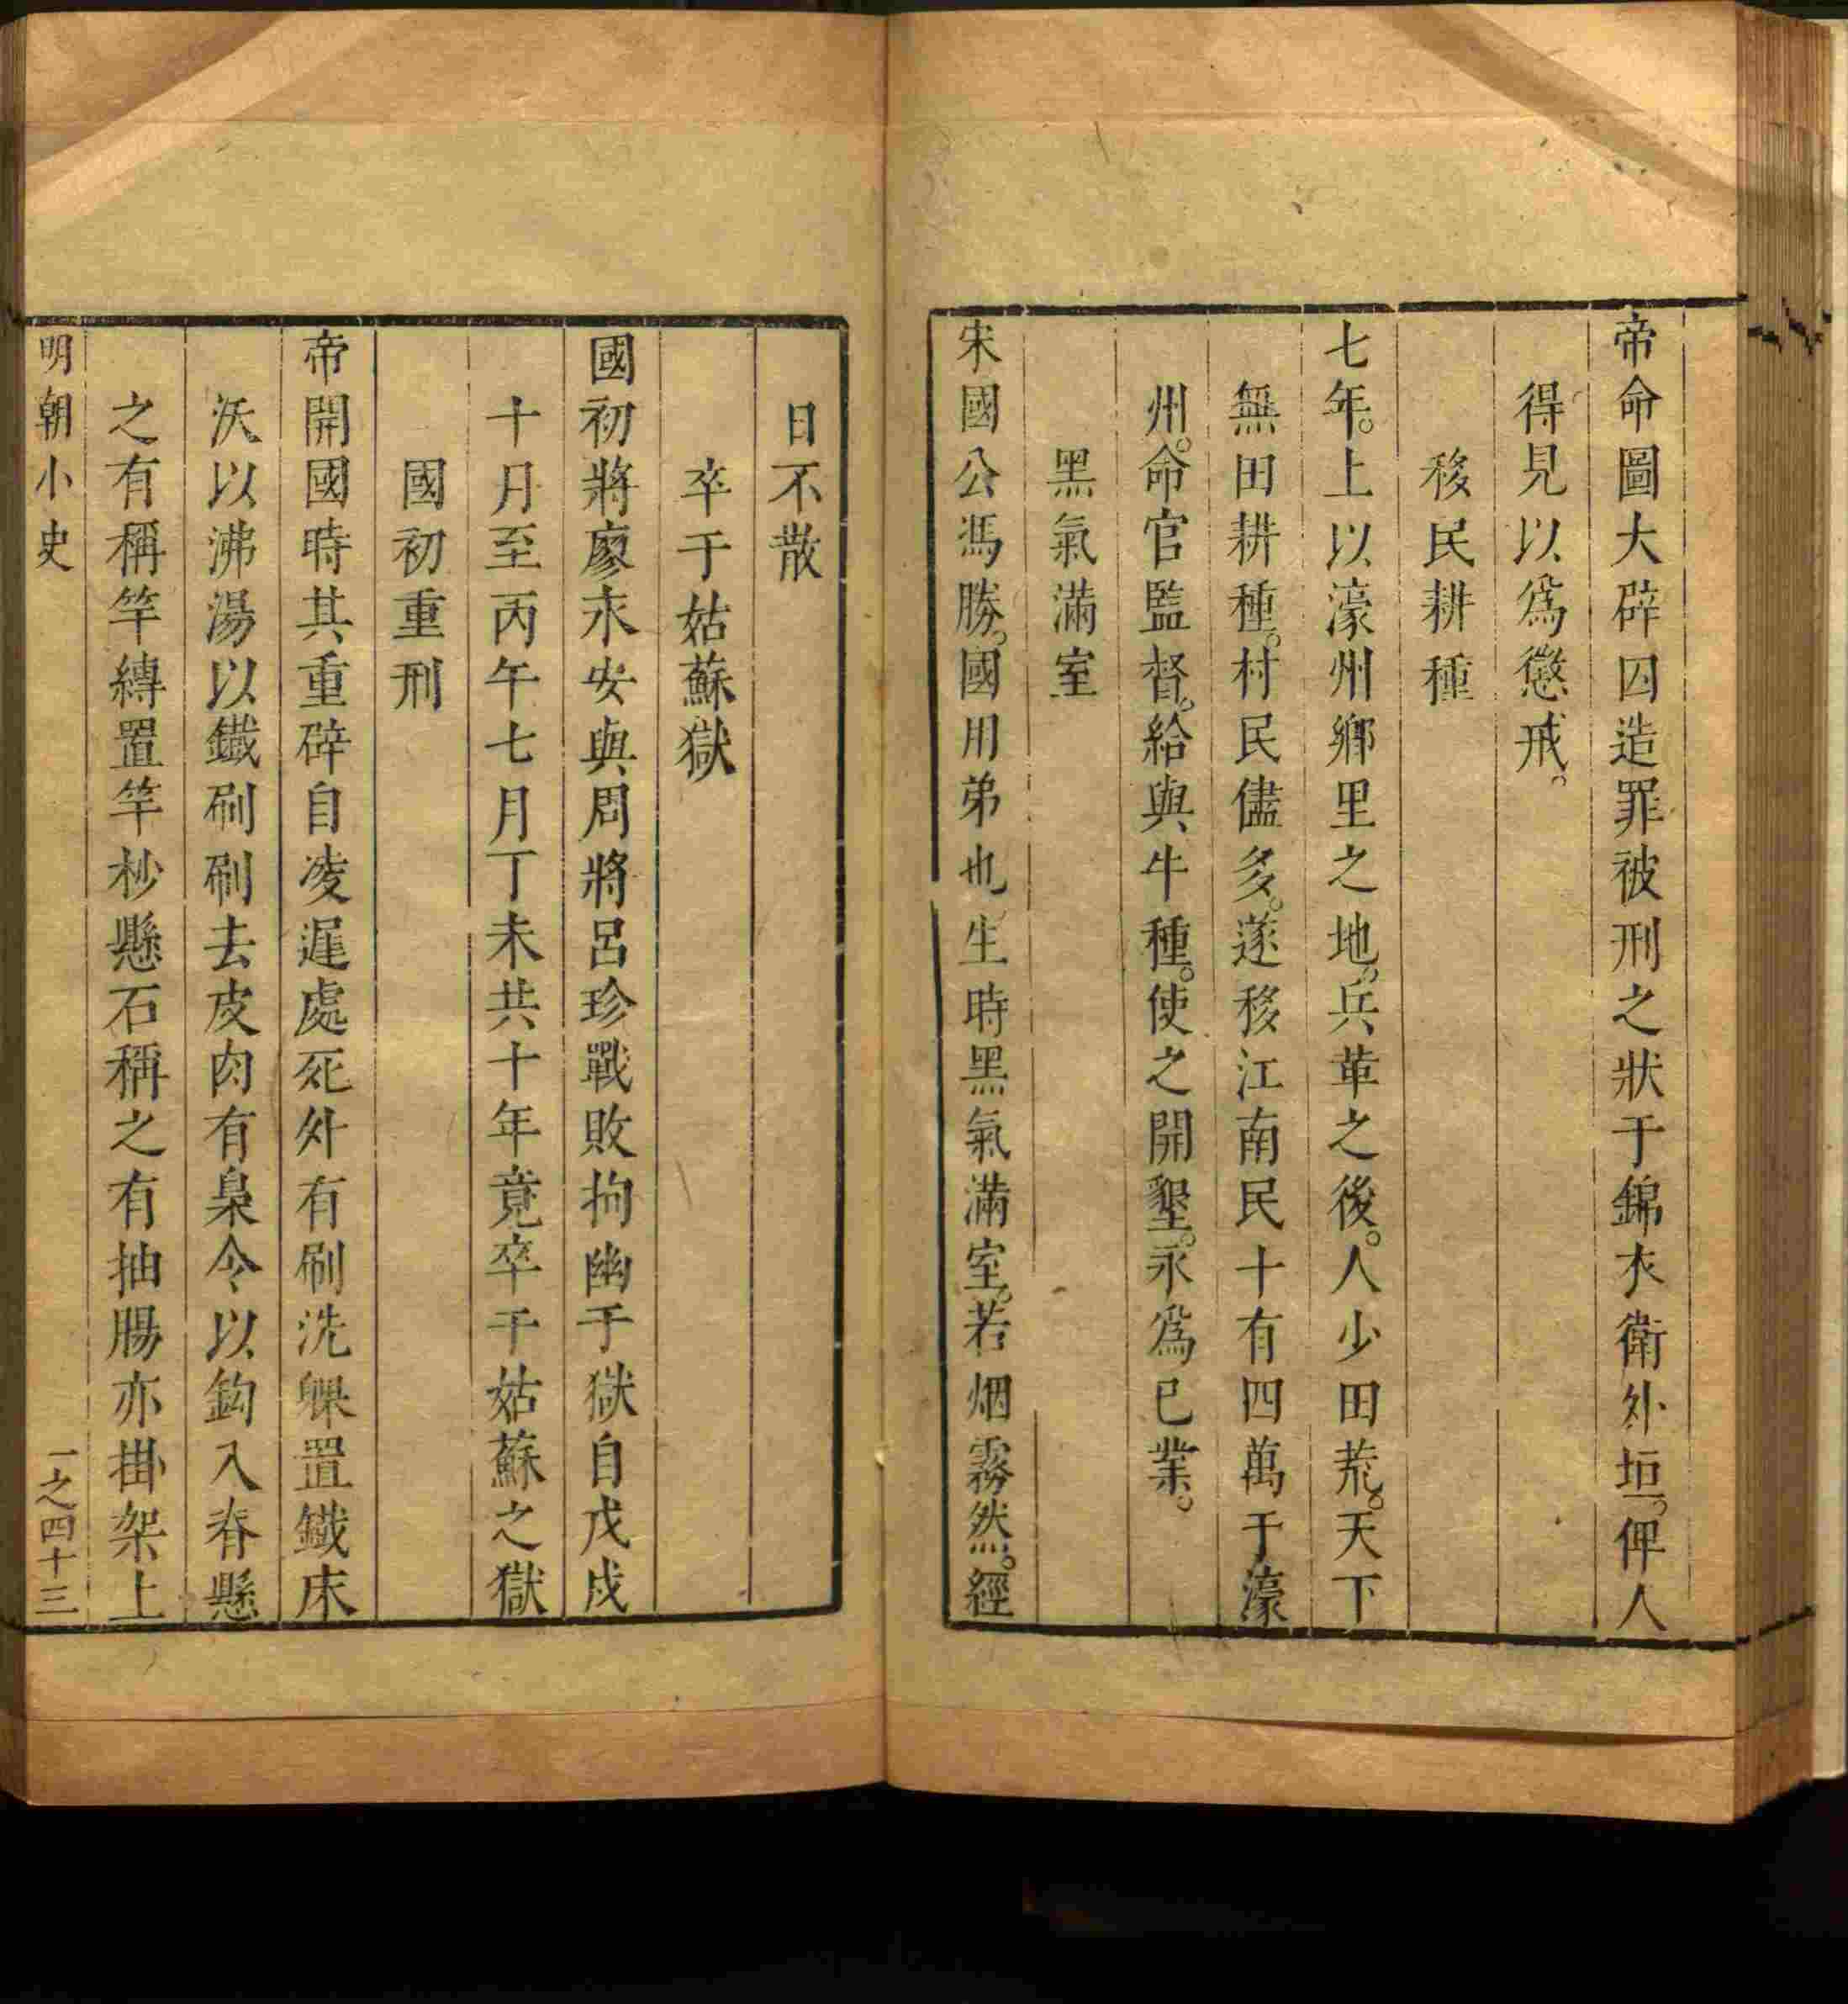 帝命圖大辟囚造罪被刑之狀于錦衣衛外垣。俾人
得見以爲懲戒。
移民耕種
七年。上以濠州鄉里之地。兵革之後。人少田荒。天下
無田耕種。村民儘多。遂移江南民十有四萬于濠
州。命官監督。給與牛種。使之開墾。永爲已業。
黑氣滿室
宋國公馮勝。國用弟也生時黑氣滿室。若烟霧然。經
日不散
卒于姑蘇獄
國初將廖永安與周將呂珍戰敗拘幽于獄自戊戌
十月至丙午七月丁未共十年竟卒于姑蘇之獄
國初重刑
帝開國時其重辟自凌遲處死外有刷洗躶置鐵床
沃以沸湯以鐵刷刷去皮肉有梟令以鈎入脊懸
之有稱竿縛置竿杪懸石稱之有抽腸亦掛架上
明朝小史
一之四十三